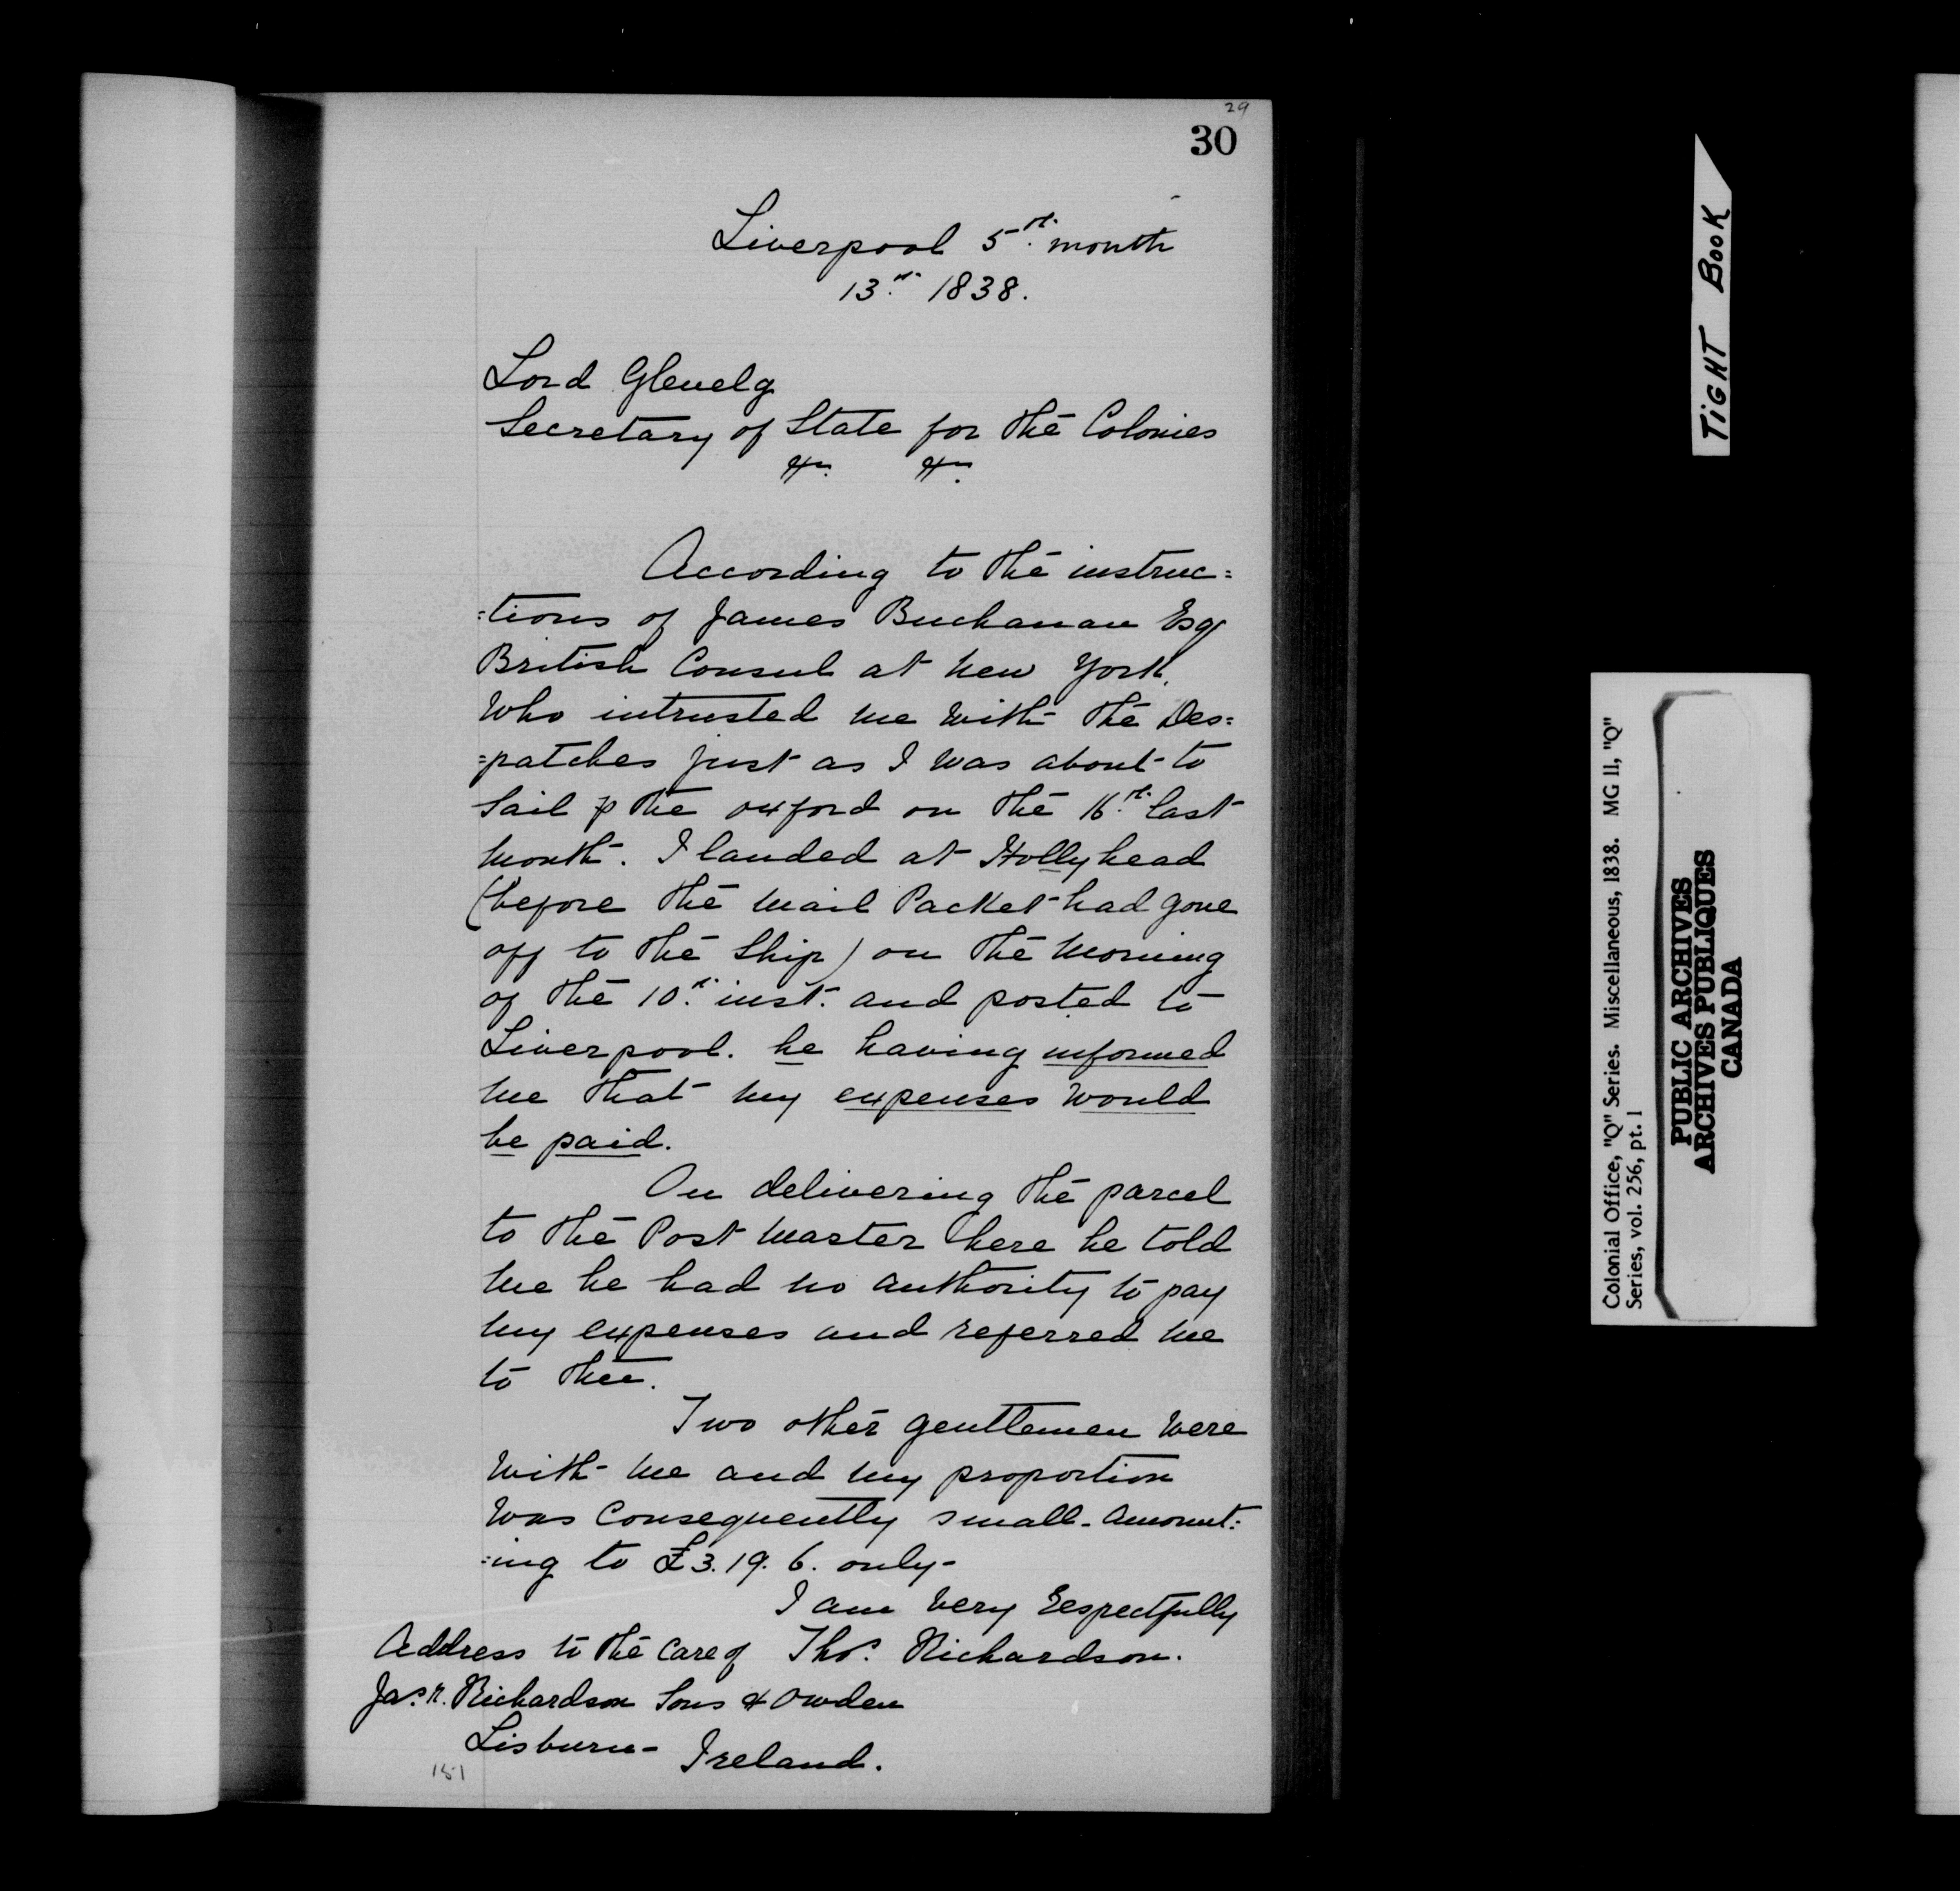 29
30
Liverpool 5th month
13th 1838.
Lord Glenelg
Secretary of State for the Colonies
&c. &c.
According to the instruc=
=tions of James Buchanan Esqr
British Consul at New York.
Who intrusted me with the Des=
=patches just as I was about to
sail p the oxford on the 16th last
month. I landed at Hollyhead
(before the mail Packet had gone
off to the Ship) on the morning
of the 10th inst. and posted to
Liverpool. he having informed
me that my expenses would
be paid.
On delivering the parcel
to the Post Master here he told
me he had no authority to pay
my expenses and referred me
to thee.
Two other gentlemen were
with me and my proportion
was consequently small - amount=
=ing to £3.19.6. only-
I am very respectfully
Address to the care of Thos. Richardson.
Jas. N. Richardson Sons & Owden
Lisburn- Ireland.
151
TIGHT BOOK
Colonial Office, "Q" Series. Miscellaneous, 1838. MG 11, "Q"
Series, vol. 256, pt. 1
PUBLIC ARCHIVES
ARCHIVES PUBLIQUES
CANADA